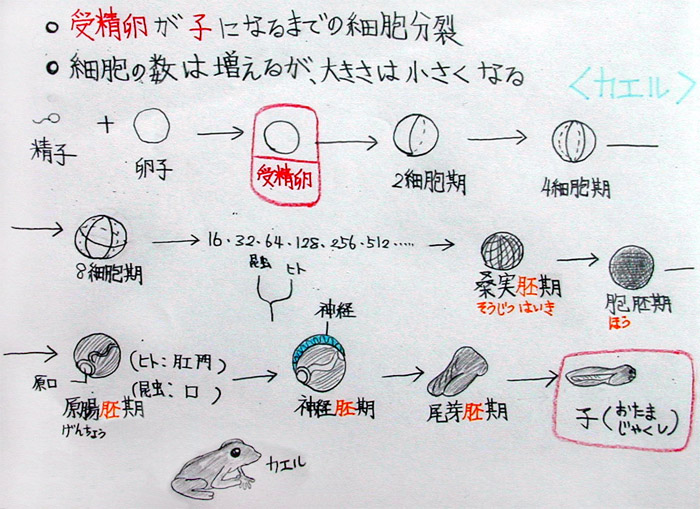 ○ 受精卵が子になるまでの細胞分裂
○ 細胞の数は増えるが、大きさは小さくなる
＜カエル＞
精子 + 卵子 → 受精卵 → 2細胞期 → 4細胞期
→ 8細胞期 → 16・32・64・128・256・512・・・・・ → 桑実胚期 → 胞胚期
そうじつはいき
ほう
昆虫 ヒト
神経
原口
(ヒト：肛門)
(昆虫：口)
→ 原腸胚期 → 神経胚期 → 尾芽胚期 → 子(おたま
じゃくし)
げんちょう
カエル